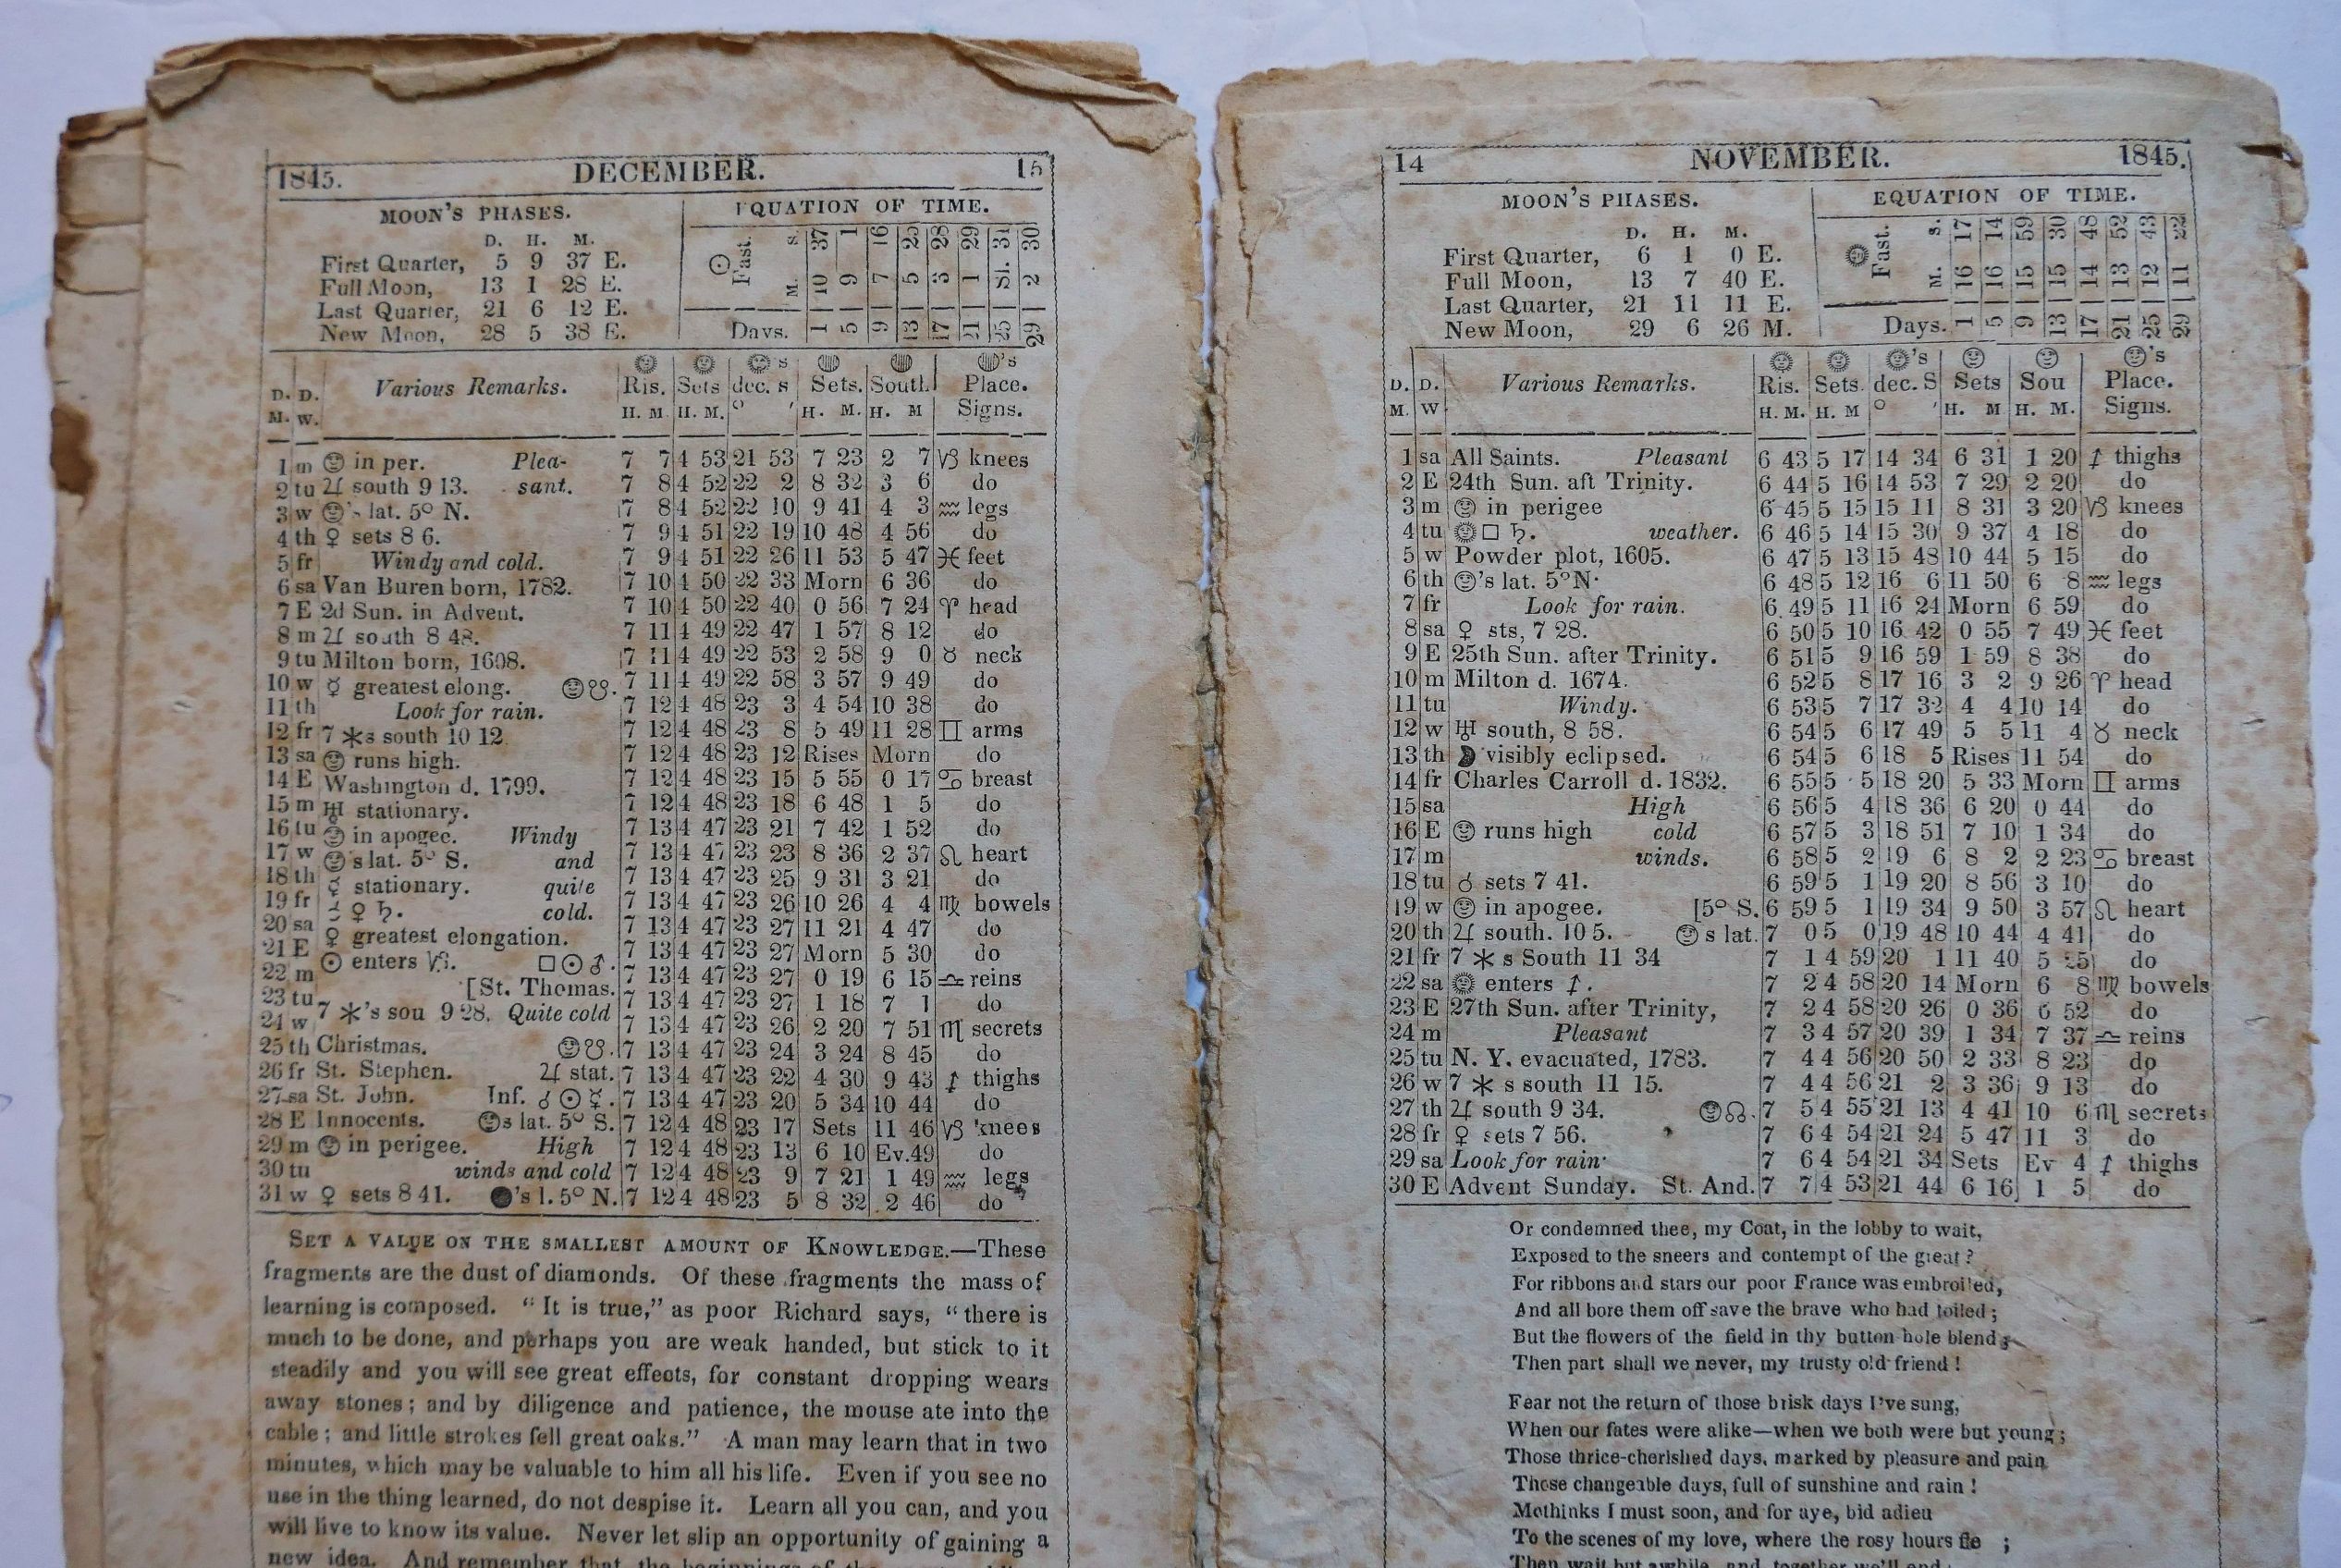 1845. DECEMBER. 15
MOON'S PHASES.
D. H. M.
First Quarter, 5 9 37 E.
Full Moon, 13 1 28 E.
Last Quarter, 21 6 12 E.
New Moon, 28 5 38 E.
EQUATION OF TIME.
☉ Fast.
S. 37 1 16 25 28 29 31 30
M. 10 9 7 5 3 1 Sl. 2
Days. 1 5 9 13 17 21 25 29
D. M. D. W. Various Remarks. Ris. Sets dec. s Sets. South Place. Signs.
H. M H. M. ° ′ H. M. H. M
1 m ☺ in per. Plea- 7 7 4 53 21 53 7 23 2 7 ♑ knees
2 tu ♃ south 9 13. sant. 7 8 4 52 22 2 8 32 3 6 do
3 w ☺'s lat. 5° N. 7 8 4 52 22 10 9 41 4 3 ♒ legs
4 th ♀ sets 8 6. 7 9 4 51 22 19 10 48 4 56 do
5 fr Windy and cold. 7 9 4 51 22 26 11 53 5 47 ♓ feet
6 sa Van Buren born, 1782. 7 10 4 50 22 33 Morn 6 36 do
7 E 2d Sun. in Advent. 7 10 4 50 22 40 0 56 7 24 ♈ head
8 m ♃ south 8 48. 7 11 4 49 22 47 1 57 8 12 do
9 tu Milton born, 1608. 7 11 4 49 22 53 2 58 9 0 ♉ neck
10 w ☿ greatest elong. ☺☋. 7 11 4 49 22 58 3 57 9 49 do
11 th Look for rain. 7 12 4 48 23 3 4 54 10 38 do
12 fr 7 *s south 10 12 7 12 4 48 23 8 5 49 11 28 ♊ arms
13 sa ☺ runs high. 7 12 4 48 23 12 Rises Morn do
14 E Washington d. 1799. 7 12 4 48 23 15 5 55 0 17 ♋ breast
15 m ♅ stationary. 7 12 4 48 23 18 6 48 1 5 do
16 tu ☺ in apogee. Windy 7 13 4 47 23 21 7 42 1 52 do
17 w ☺'s lat. 5° S. and 7 13 4 47 23 23 8 36 2 37 ♌ heart
18 th ☿ stationary. quite 7 13 4 47 23 25 9 31 3 21 do
19 fr ☌ ♀ ♄. cold. 7 13 4 47 23 26 10 26 4 4 ♍ bowels
20 sa ♀ greatest elongation. 7 13 4 47 23 27 11 21 4 47 do
21 E ☉ enters ♑. □☉♂. 7 13 4 47 23 27 Morn 5 30 do
22 m [St. Thomas. 7 13 4 47 23 27 0 19 6 15 ♎ reins
23 tu 7 *'s sou 9 28. Quite cold 7 13 4 47 23 27 1 18 7 1 do
24 w 7 13 4 47 23 26 2 20 7 51 ♏ secrets
25 th Christmas. ☺☋. 7 13 4 47 23 24 3 24 8 45 do
26 fr St. Stephen. ♃ stat. 7 13 4 47 23 22 4 30 9 43 ♐ thighs
27 sa St. John. Inf. ☌☉☿. 7 13 4 47 23 20 5 34 10 44 do
28 E Innocents. ☺s lat. 5° S. 7 12 4 48 23 17 Sets 11 46 ♑ knees
29 m ☺ in perigee. High 7 12 4 48 23 13 6 10 Ev.49 do
30 tu winds and cold 7 12 4 48 23 9 7 21 1 49 ♒ legs
31 w ♀ sets 8 41. ●'s l. 5° N. 7 12 4 48 23 5 8 32 2 46 do
SET A VALUE ON THE SMALLEST AMOUNT OF KNOWLEDGE.—These
fragments are the dust of diamonds. Of these fragments the mass of
learning is composed. "It is true," as poor Richard says, "there is
much to be done, and perhaps you are weak handed, but stick to it
steadily and you will see great effects, for constant dropping wears
away stones; and by diligence and patience, the mouse ate into the
cable; and little strokes fell great oaks." A man may learn that in two
minutes, which may be valuable to him all his life. Even if you see no
use in the thing learned, do not despise it. Learn all you can, and you
will live to know its value. Never let slip an opportunity of gaining a
new idea. And remember that the beginnings of the
14 NOVEMBER. 1845.
MOON'S PHASES.
D. H. M.
First Quarter, 6 1 0 E.
Full Moon, 13 7 40 E.
Last Quarter, 21 11 11 E.
New Moon, 29 6 26 M.
EQUATION OF TIME.
Fast.
S. 17 14 59 30 48 52 43 22
M. 16 16 15 15 14 13 12 11
Days. 1 5 9 13 17 21 25 29
D. M. D. W Various Remarks. Ris. Sets. dec. S Sets Sou Place. Signs.
H. M. H. M ° ′ H. M H. M.
1 sa All Saints. Pleasant 6 43 5 17 14 34 6 31 1 20 ♐ thighs
2 E 24th Sun. aft Trinity. 6 44 5 16 14 53 7 29 2 20 do
3 m ☺ in perigee 6 45 5 15 15 11 8 31 3 20 ♑ knees
4 tu ☉□♄. weather. 6 46 5 14 15 30 9 37 4 18 do
5 w Powder plot, 1605. 6 47 5 13 15 48 10 44 5 15 do
6 th ☺'s lat. 5°N. 6 48 5 12 16 6 11 50 6 8 ♒ legs
7 fr Look for rain. 6 49 5 11 16 24 Morn 6 59 do
8 sa ♀ sts, 7 28. 6 50 5 10 16 42 0 55 7 49 ♓ feet
9 E 25th Sun. after Trinity. 6 51 5 9 16 59 1 59 8 38 do
10 m Milton d. 1674. 6 52 5 8 17 16 3 2 9 26 ♈ head
11 tu Windy. 6 53 5 7 17 32 4 4 10 14 do
12 w ♅ south, 8 58. 6 54 5 6 17 49 5 5 11 4 ♉ neck
13 th ☽ visibly eclipsed. 6 54 5 6 18 5 Rises 11 54 do
14 fr Charles Carroll d. 1832. 6 55 5 5 18 20 5 33 Morn ♊ arms
15 sa High 6 56 5 4 18 36 6 20 0 44 do
16 E ☺ runs high cold 6 57 5 3 18 51 7 10 1 34 do
17 m winds. 6 58 5 2 19 6 8 2 2 23 ♋ breast
18 tu ♂ sets 7 41. 6 59 5 1 19 20 8 56 3 10 do
19 w ☺ in apogee. [5° S. 6 59 5 1 19 34 9 50 3 57 ♌ heart
20 th ♃ south. 10 5. ☺s lat. 7 0 5 0 19 48 10 44 4 41 do
21 fr 7 * s South 11 34 7 1 4 59 20 1 11 40 5 25 do
22 sa ☉ enters ♐. 7 2 4 58 20 14 Morn 6 8 ♍ bowels
23 E 27th Sun. after Trinity, 7 2 4 58 20 26 0 36 6 52 do
24 m Pleasant 7 3 4 57 20 39 1 34 7 37 ♎ reins
25 tu N. Y. evacuated, 1783. 7 4 4 56 20 50 2 33 8 23 do
26 w 7 * s south 11 15. 7 4 4 56 21 2 3 36 9 13 do
27 th ♃ south 9 34. ☺☊. 7 5 4 55 21 13 4 41 10 6 ♏ secrets
28 fr ♀ sets 7 56. 7 6 4 54 21 24 5 47 11 3 do
29 sa Look for rain 7 6 4 54 21 34 Sets Ev 4 ♐ thighs
30 E Advent Sunday. St. And. 7 7 4 53 21 44 6 16 1 5 do
Or condemned thee, my Coat, in the lobby to wait,
Exposed to the sneers and contempt of the great?
For ribbons and stars our poor France was embroiled,
And all bore them off save the brave who had toiled;
But the flowers of the field in thy button-hole blend;
Then part shall we never, my trusty old friend!
Fear not the return of those brisk days I've sung,
When our fates were alike—when we both were but young;
Those thrice-cherished days, marked by pleasure and pain
Those changeable days, full of sunshine and rain!
Methinks I must soon, and for aye, bid adieu
To the scenes of my love, where the rosy hours fle ;
Then wait but awhile, and together we'll end;